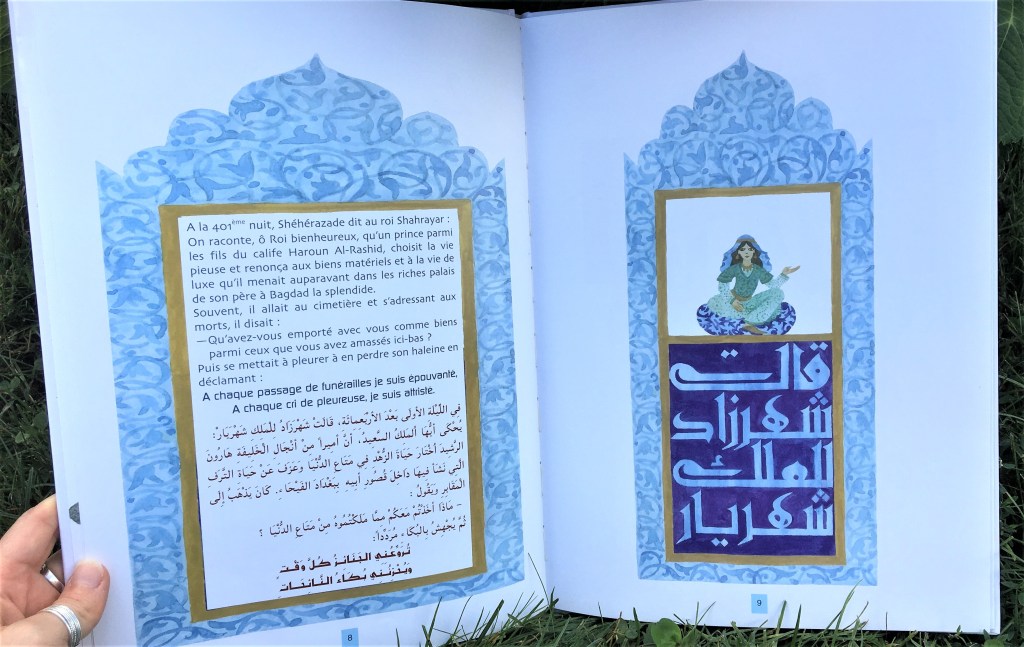 A la 401ème nuit, Shéhérazade dit au roi Shahrayar :
On raconte, ô Roi bienheureux, qu'un prince parmi
les fils du calife Haroun Al-Rashid, choisit la vie
pieuse et renonça aux biens matériels et à la vie de
luxe qu'il menait auparavant dans les riches palais
de son père à Bagdad la splendide.
Souvent, il allait au cimetière et s'adressant aux
morts, il disait :
—Qu'avez-vous emporté avec vous comme biens
parmi ceux que vous avez amassés ici-bas ?
Puis se mettait à pleurer à en perdre son haleine en
déclamant :
A chaque passage de funérailles je suis épouvanté,
A chaque cri de pleureuse, je suis attristé.
في اللَّيْلَة الأولى بَعْدَ الأرْبَعِمائَة، قالَتْ شَهْرَزادُ للْمَلِكِ شَهْرَيَارْ:
يُحْكَى أيُّهَا ألمَلكُ السَّعِيدُ، أنَّ أميراً مِنْ أنْجَالِ الْخَلِيفَة هَارُونَ
الرَّشِيد أخْتَارَ حَيَاةَ الزُّهْد فِي مَتَاعِ الدُّنْيَا وعَزَفَ عَنْ حَيَاة التَّرَف
الَّتِي نَشَأ فِيهَا دَاخِلَ قُصُورِ أبِيهِ بِبَغْدَادَ الفَيْحَاءِ. كَانَ يَذْهَبُ إلَى
المَقَابِر وَيَقُولُ :
- مَاذَا أخَذْتُمْ مَعَكُمْ مِمَّا مَلَكْتُمُوهُ مِنْ مَتَاعِ الدُّنْيَا ؟
ثُمَّ يُجْهِشُ بِالبُكَاءِ مُرَدِّدًا:
تُرَوِّعُنِي الجَنَائِزُ كُلَّ وَقْتٍ
وَيُحْزِنُنِي بُكَاءُ النَّائِحَاتِ
8
قالت
شهرزاد
للملك
شهريار
9